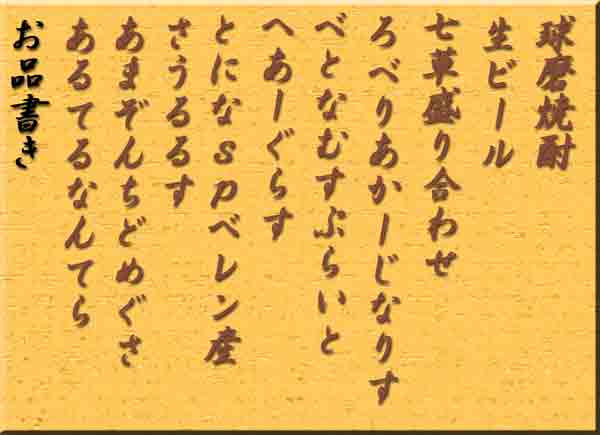 球磨焼酎
生ビール
七草盛り合わせ
ろべりあかーじなりす
べとなむすぷらいと
へあーぐらす
とになｓｐベレン産
さうるるす
あまぞんちどめぐさ
あるてるなんてら
お品書き